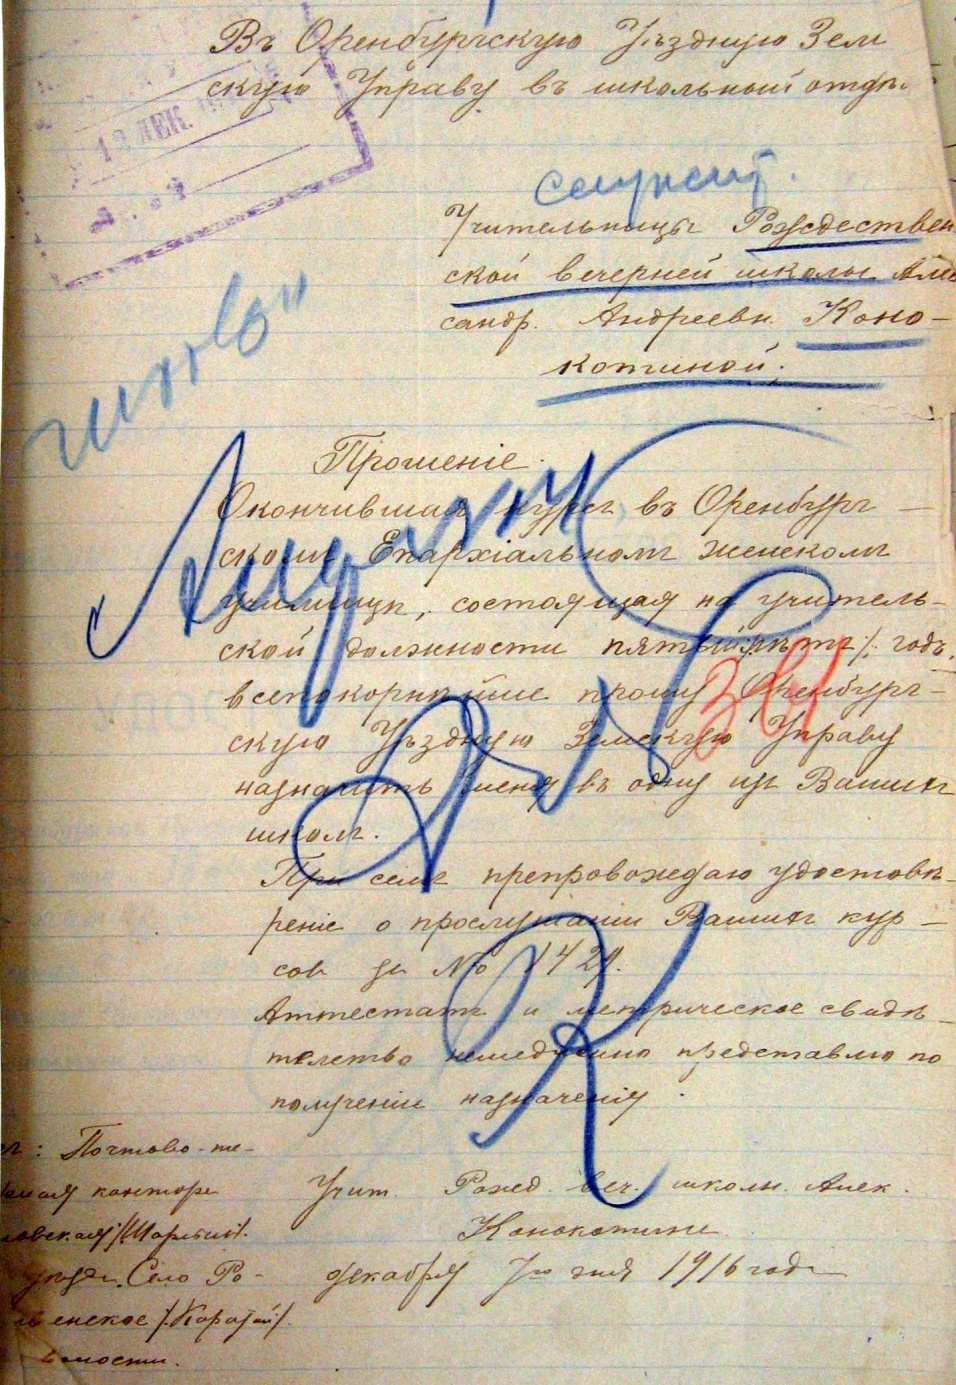 Въ Оренбургскую Уѣздную Зем
скую Управу въ школьный отдѣ.
12 ДЕК.
Учительницы Рождествен
ской вечерней школы Алек
сандр. Андреевн. Коно-
котиной.
Прошеніе.
Окончившая курсъ въ Оренбург-
скомъ Епархіальномъ женскомъ
училищѣ, состоящая на учитель-
ской должности пятый годъ,
всепокорнѣйше прошу Оренбург-
скую Уѣздную Земскую Управу
назначить меня въ одну изъ Вашихъ
школъ.
При семъ препровождаю удостовѣ-
реніе о прослушаніи Вашихъ кур-
совъ за № 1429.
Аттестатъ и метрическое свидѣ-
телство немедленно представлю по
полученіи назначенія.
Почтово-те-
контора
Село Ро-
волости.
Учит. Рожд. веч. школы. Алек.
Конокотина
декабря 7го дня 1916 года